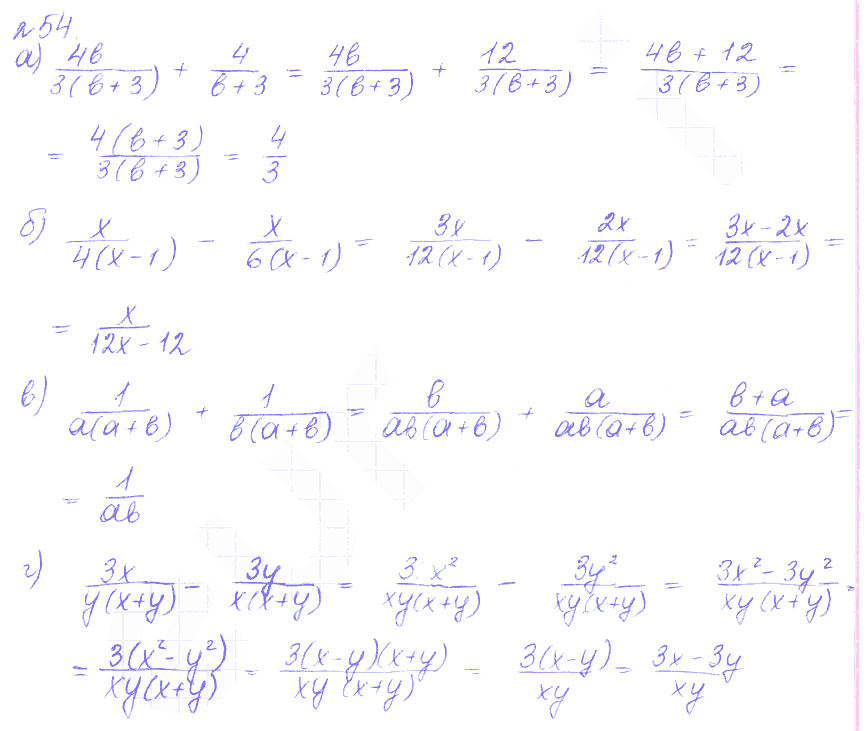 №54.
а) 4b/3(b+3) + 4/b+3 = 4b/3(b+3) + 12/3(b+3) = 4b+12/3(b+3) =
= 4(b+3)/3(b+3) = 4/3
б) x/4(x-1) - x/6(x-1) = 3x/12(x-1) - 2x/12(x-1) = 3x-2x/12(x-1) =
= x/12x-12
в) 1/a(a+b) + 1/b(a+b) = b/ab(a+b) + a/ab(a+b) = b+a/ab(a+b) =
= 1/ab
г) 3x/y(x+y) - 3y/x(x+y) = 3x²/xy(x+y) - 3y²/xy(x+y) = 3x²-3y²/xy(x+y) =
= 3(x²-y²)/xy(x+y) = 3(x-y)(x+y)/xy(x+y) = 3(x-y)/xy = 3x-3y/xy